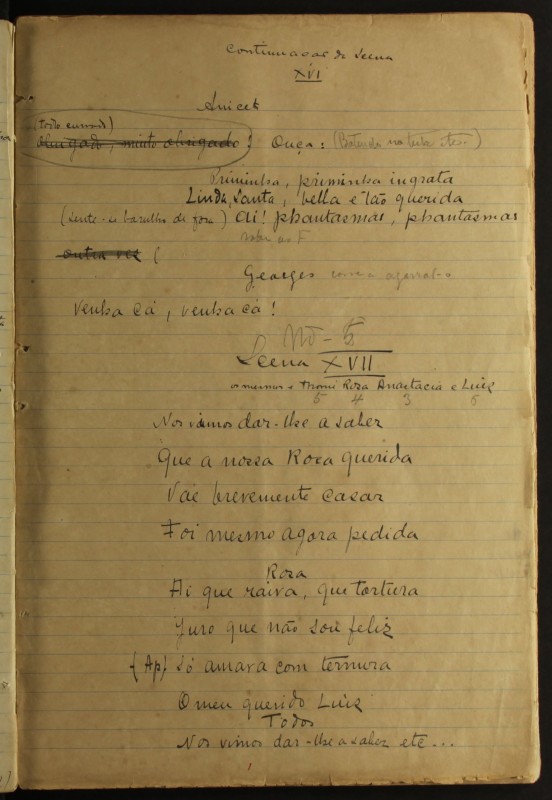 Continuação de Scena
XVI
Anicet
(todo curvado)
Obrigado, muito obrigado! Ouça: (Batendo na testa etc.)
Priminha, priminha ingrata
Linda, Santa, bella e tão querida
(Sente-se barulho de fora) Ai! phantasmas, phantasmas
outra vez (
Georges
Venha cá, venha cá!
Nº - 5
Scena XVII
os mesmos e Roza Anastacia e Luiz
5 4 3 6
Nos vimos dar-lhe a saber
Que a nossa Roza querida
Vae brevemente casar
Foi mesmo agora pedida
Roza
Ai que raiva, que tortura
Juro que não sou feliz
(Ap) Só amara com ternura
O meu querido Luiz
Todos
Nos vimos dar-lhe a saber etc...